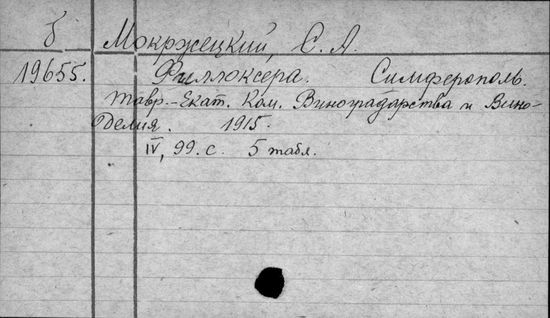 б Мокржецкий, С. А.
19655. Филлоксера. Симферополь.
Тавр.-Екат. Ком. Виноградарства и Вино-
делия. 1915.
IV, 99. с. 5 табл.